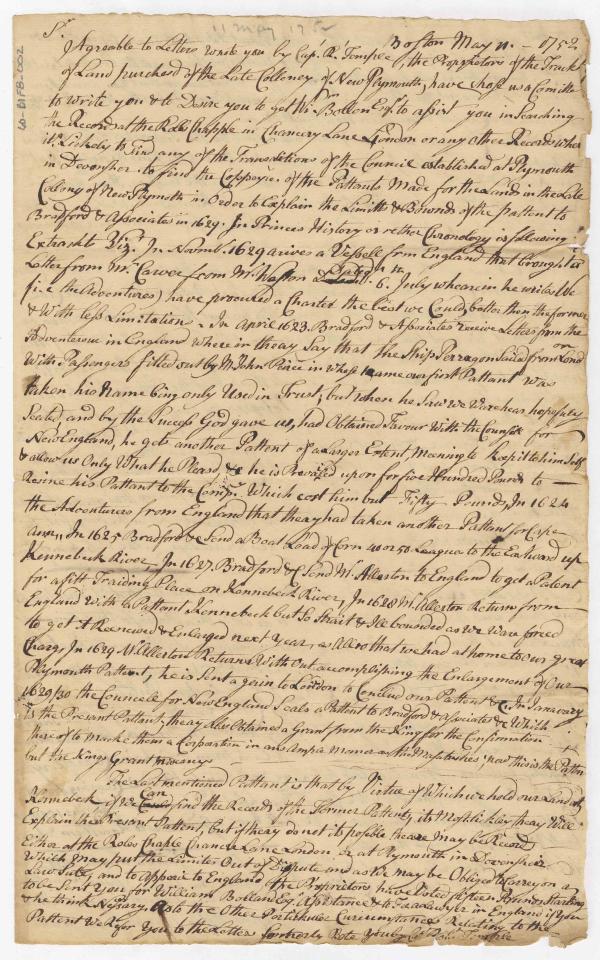 11 May 1752
Sr. Boston May 11. - 1752
Agreable to Letters wrote you by Cap. Rt. Temple, the Proprietors of the Trackt
of Land purchesd of the Late Colloney of New Plymouth, have chose us a Comitte
to write you & to Desire you to get Wm. Bollon Esqr. to assist you in Searching
the Records at the Rols Chapple in Chancery Lane London or any other Records where
it's Likely to find any of the Transactions of the Council established at Plymouth
in Devonsher. to find the Coppeyes. of the Pattants Made for the Lands in the Late
Colony of New Plymoth in Order to Explain the Limitts & Bownds of the pattent to
Bradford & Associates in 1629. In Princes History or rether Chronology is following
Extrackt Vizt. In Novembr. 1629 arives a Vessell from England that brought us
Letter from Mr. Carver from Mr. Weston Dated 6. July wharein he writes We
(i.e the Adventures) have procured a Charter the best we Could, better then the former
& With less Limitation. In April 1623. Bradford & Associates receive Letters from the
Adventerers in England where in theay Say that the Ship Parragon Saild from Lond on
With Passengers fitted out by Mr. John Peirce in Whose Name our first Pattant was
taken his Name bing only Used in Trust, but when he Saw We Ware hear hopefuly
Seated and by the Success God gave us, had Obtained Favour With the Counsell for
New England, he gets another Pattent of a Larger Extent, Meaning to keep it to him Self
& allow us Only What he Pleasd, & he is Prevaild upon for five Hundred Pounds to
Resine his Pattant to the Compy. Which cost him but Fifty Pounds, In 1624
the Adventures from England that theay had taken another Pattant for Cape
Ann, In 1625 Bradford & Send a Boat Load of Corn 40 or 50 Leagues to the Eastward up
Kennebeck River, In 1627. Bradford &c Send Mr. Allerton to England to get a Patent
for a fitt Traiding Place on Kennebeck River, In 1628 Mr. Allerton Return from
England With a Pattant Kennebeck but So Strait & Ill bounded as We Ware forced
to get it Reenewed & Enlarged next Year, as Allso that we had at home to our great
Charg, In 1629 Mr. Allerton Returns With Out accomplishing the Enlargement of Our
Pleymouth Pattent, he is Sent again to London to Conclud our Pattent &c. In Janawary
1629/30 the Councele for New England Seals a Pattent to Bradford & asociates & Which
is the Present Pattant, theay Allso Obtained a Grant from the King for the Confirmation
thereof to Make them a Corparation in as Ampra Maner as the Massechuses now this is the Patten
but the Kings Grant
The Last mentioned Pattant is that by Virtue of Which we hold our Land at
Kennebek, if We Can find the Records of the Former Pattents, its Most Likley theay Will
Explain the Present Patent, but if theay do not its posible theare May be Record
Either at the Roles Chaple Chancer Lane London or at Plymouth in Devonsheir
Which May put the Limites Out of Dispute and as We may be Obliged to Carrey on a
Law Sute, and to Appeir to England, the Proprietors have Voted fifteen Pounds Starling
to be Sent you for William Bolland Esq Assistance & to Fea a Lawyer in England if you
& he think Nessary. As to the Other Pertickuler Circumstances Relating to the
Pattent We Refer you to the Letter formerly Rote you by Capt. Robt. Temple